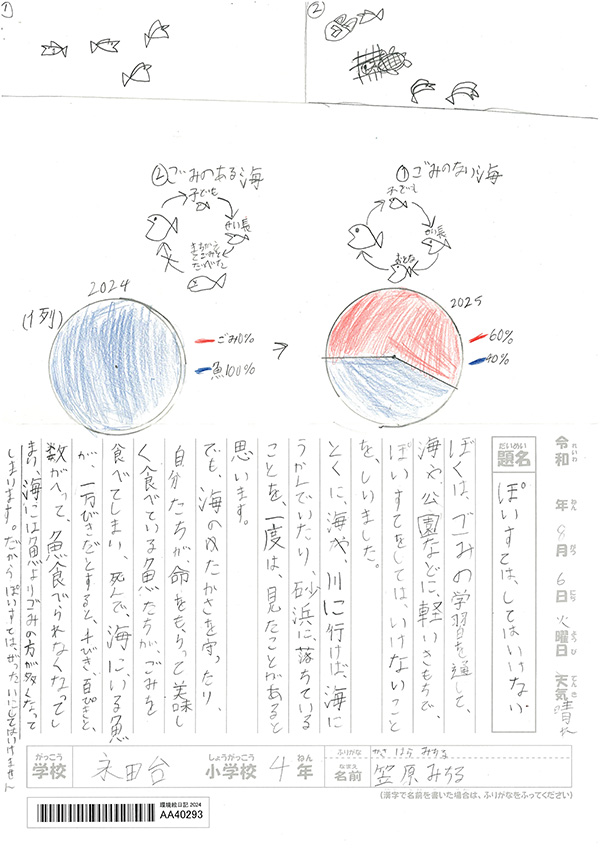 ①
②
②ごみのある海
子ども
せい長
まちがえてごみをたべた
①ごみのない海
子ども
せい長
おとな
2024
(1列)
ごみ0%
魚100%
→
2025
60%
40%
令和 年 8月 6日 火曜日 天気 晴れ
れいわ ねん がつ にち ようび てんき
だいめい
題名
ぽいすては、してはいけない
ぼくは、ごみの学習を通して、
海や公園などに、軽いきもちで、
ぽいすてをしては、いけないこと
を、しいました。
とくに、海や、川に行けば、海に
うかんでいたり、砂浜に、落ちている
ことを、一度は、見たことがあると
思います。
でも、海のゆたかさを守ったり、
自分たちが、命をもらって美味し
く食べている魚たちが、ごみを
食べてしまい、死んで、海にいる魚
が、一万びきだとすると、十ぴき、百ぴきと、
数がへって、魚食べられなくなってし
まい海には魚よりごみの方が多くなって
しまります。だからぽいすては、ぜったいにしてはいけません
がっこう
学校
永田台
しょうがっこう
小学校
4
ねん
年
ふりがな
かさ はら みちる
なまえ
名前
笠原みちる
(漢字で名前を書いた場合は、ふりがなをふってください)
環境絵日記 2024
AA40293